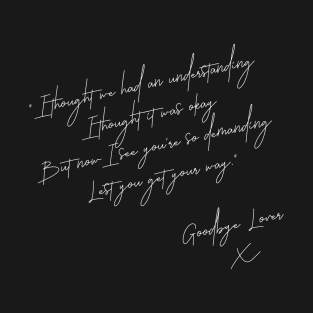 "I thought we had an understanding
I thought it was okay
But now I see you're so demanding
Lest you get your way."
Goodbye Lover
X